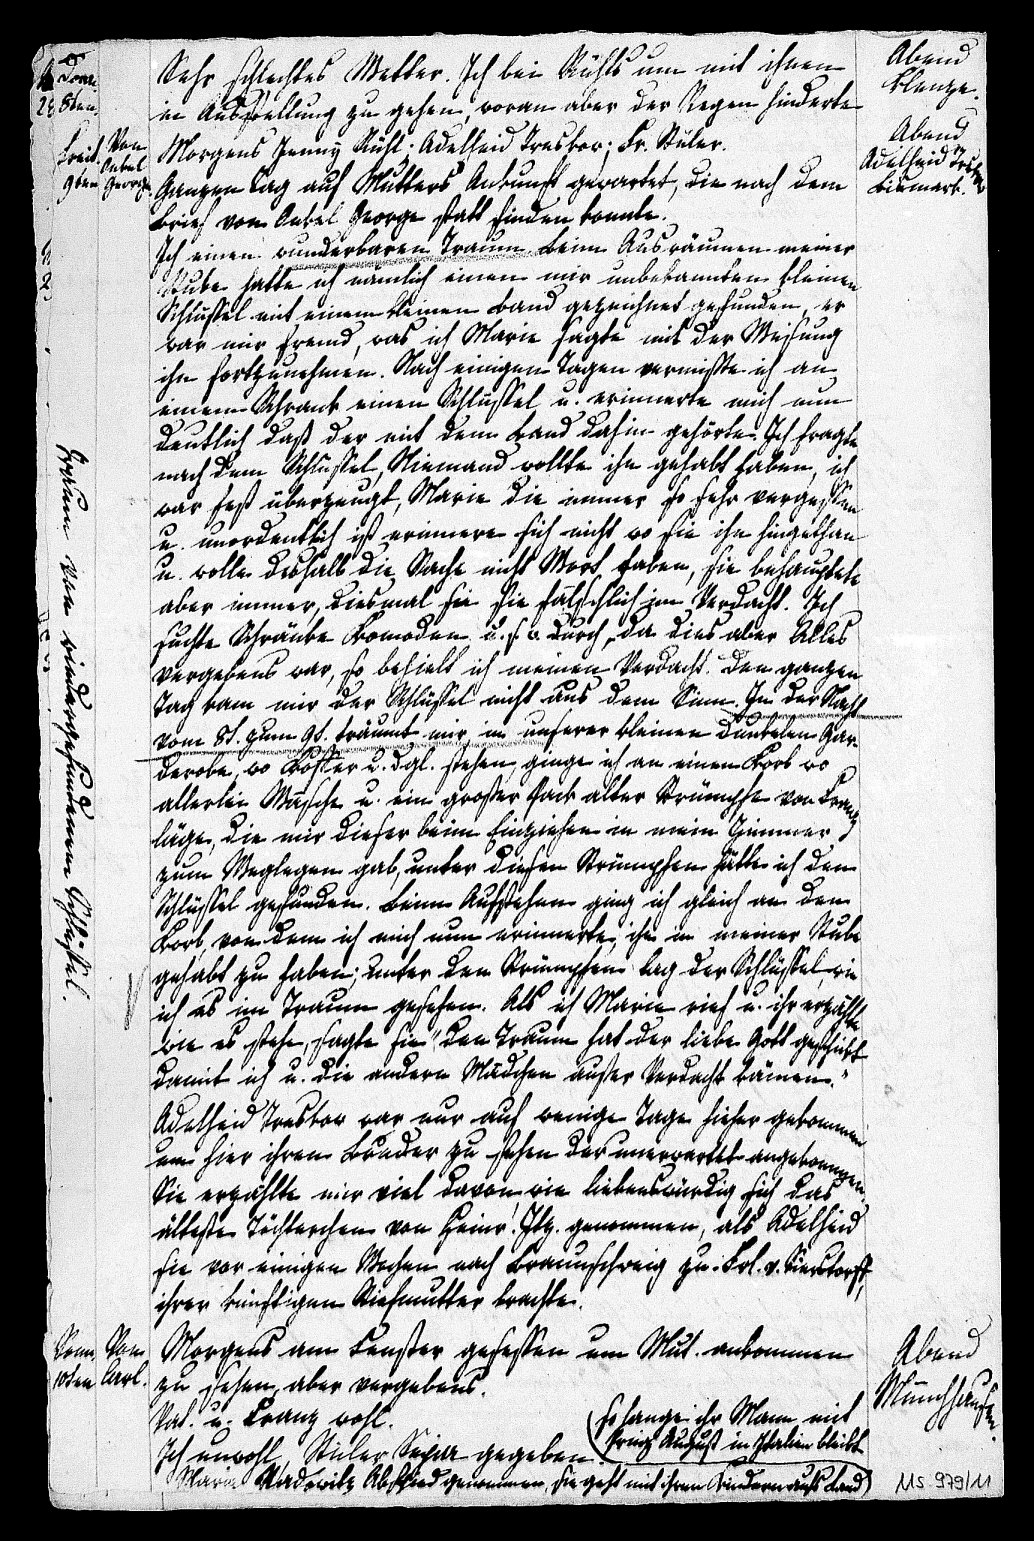 Don.
8ten.
Sehr schlechtes Wetter. Ich bei Rühls um mit ihnen
in Ausstellung zu gehen, woran aber der Regen hinderte
Abend
Klenze.
Freit.
9ten
Von
Onkel
George.
Morgens Jenny Rühl; Adelheid Treskow; Fr. Stüler.
Ganzen Tag auf Mutters Ankunft gewartet, die nach dem
Brief von Onkel George statt finden konnte.
Abend
Adelheid Treskow
Bismark.
Ich einen wunderbaren Traum. Beim Ausräumen meiner
Stube hatte ich nämlich einen mir unbekannten kleinen
Schlüssel mit einem kleinen Band gezeichnet gefunden, er
war mir fremd, was ich Marie sagte mit der Weisung
ihn fortzunehmen. Nach einigen Tagen vermißte ich an
einem Schrank einen Schlüssel u. erinnerte mich nun
deutlich daß der mit dem Band dahin gehörte. Ich fragte
nach dem Schlüssel, Niemand wollte ihn gehabt haben, ich
war fest überzeugt, Marie die immer so sehr vergessen
u. unordentlich ist erinnere sich nicht wo sie ihn hingethan
u. wolle deshalb die Sache nicht Wort haben, sie behauptete
aber immer, diesmal sei sie fälschlich im Verdacht. Ich
suchte Schränke Komoden u. s. w. durch, da dies aber Alles
vergebens war, so behielt ich meinen Verdacht. Den ganzen
Tag kam mir der Schlüssel nicht aus dem Sinn. In der Nacht
vom 8t. zum 9t. träumt mir, in unserer kleinen dunkelen Gar-
derobe, wo Koffer u. dgl. stehen, ginge ich an einen Korb wo
allerlei Wäsche u. ein großer Pack alter Strümpfe von Franz
läge, die mir dieser beim Einziehen in mein Zimmer
zum Weglegen gab, unter diesen Strümpfen hätte ich den
Schlüssel gefunden. Beim Aufstehen ging ich gleich an den
Korb, von dem ich mich nun erinnerte, ihn in meiner Stube
gehabt zu haben; unter den Strümpfen lag der Schlüssel, wie
ich es im Traum gesehen. Als ich Marie rief u. ihr erzählte
wie es stehe, sagte sie „den Traum hat der liebe Gott geschickt
damit ich u. die andern Mädchen außer Verdacht kämen."
Traum von wiedergefundenem Schlüssel.
Adelheid Treskow war nur auf wenige Tage hieher gekommen
um hier ihren Bruder zu sehen der unerwartet angekommen.
Sie erzählte mir viel davon wie liebenswürdig sich das
älteste Töchterchen von Heinr. Itz. genommen, als Adelheid
sie vor einigen Wochen nach Braunschweig zu Frl. v. Sierstorff,
ihrer künftigen Stiefmutter brachte.
10ten
Von
Carl.
Morgens am Fenster gesessen um Mut. ankommen
zu sehen, aber vergebens.
Vat. u. Franz wohl.
Ich unwohl, Stüler gegeben.
Maria Radowitz Abschied genommen, sie geht mit ihren Kindern aufs Land
so lange ihr Mann mit
Prinz August in Italien bleibt
Abend
Münchhausen.
MS 979/11